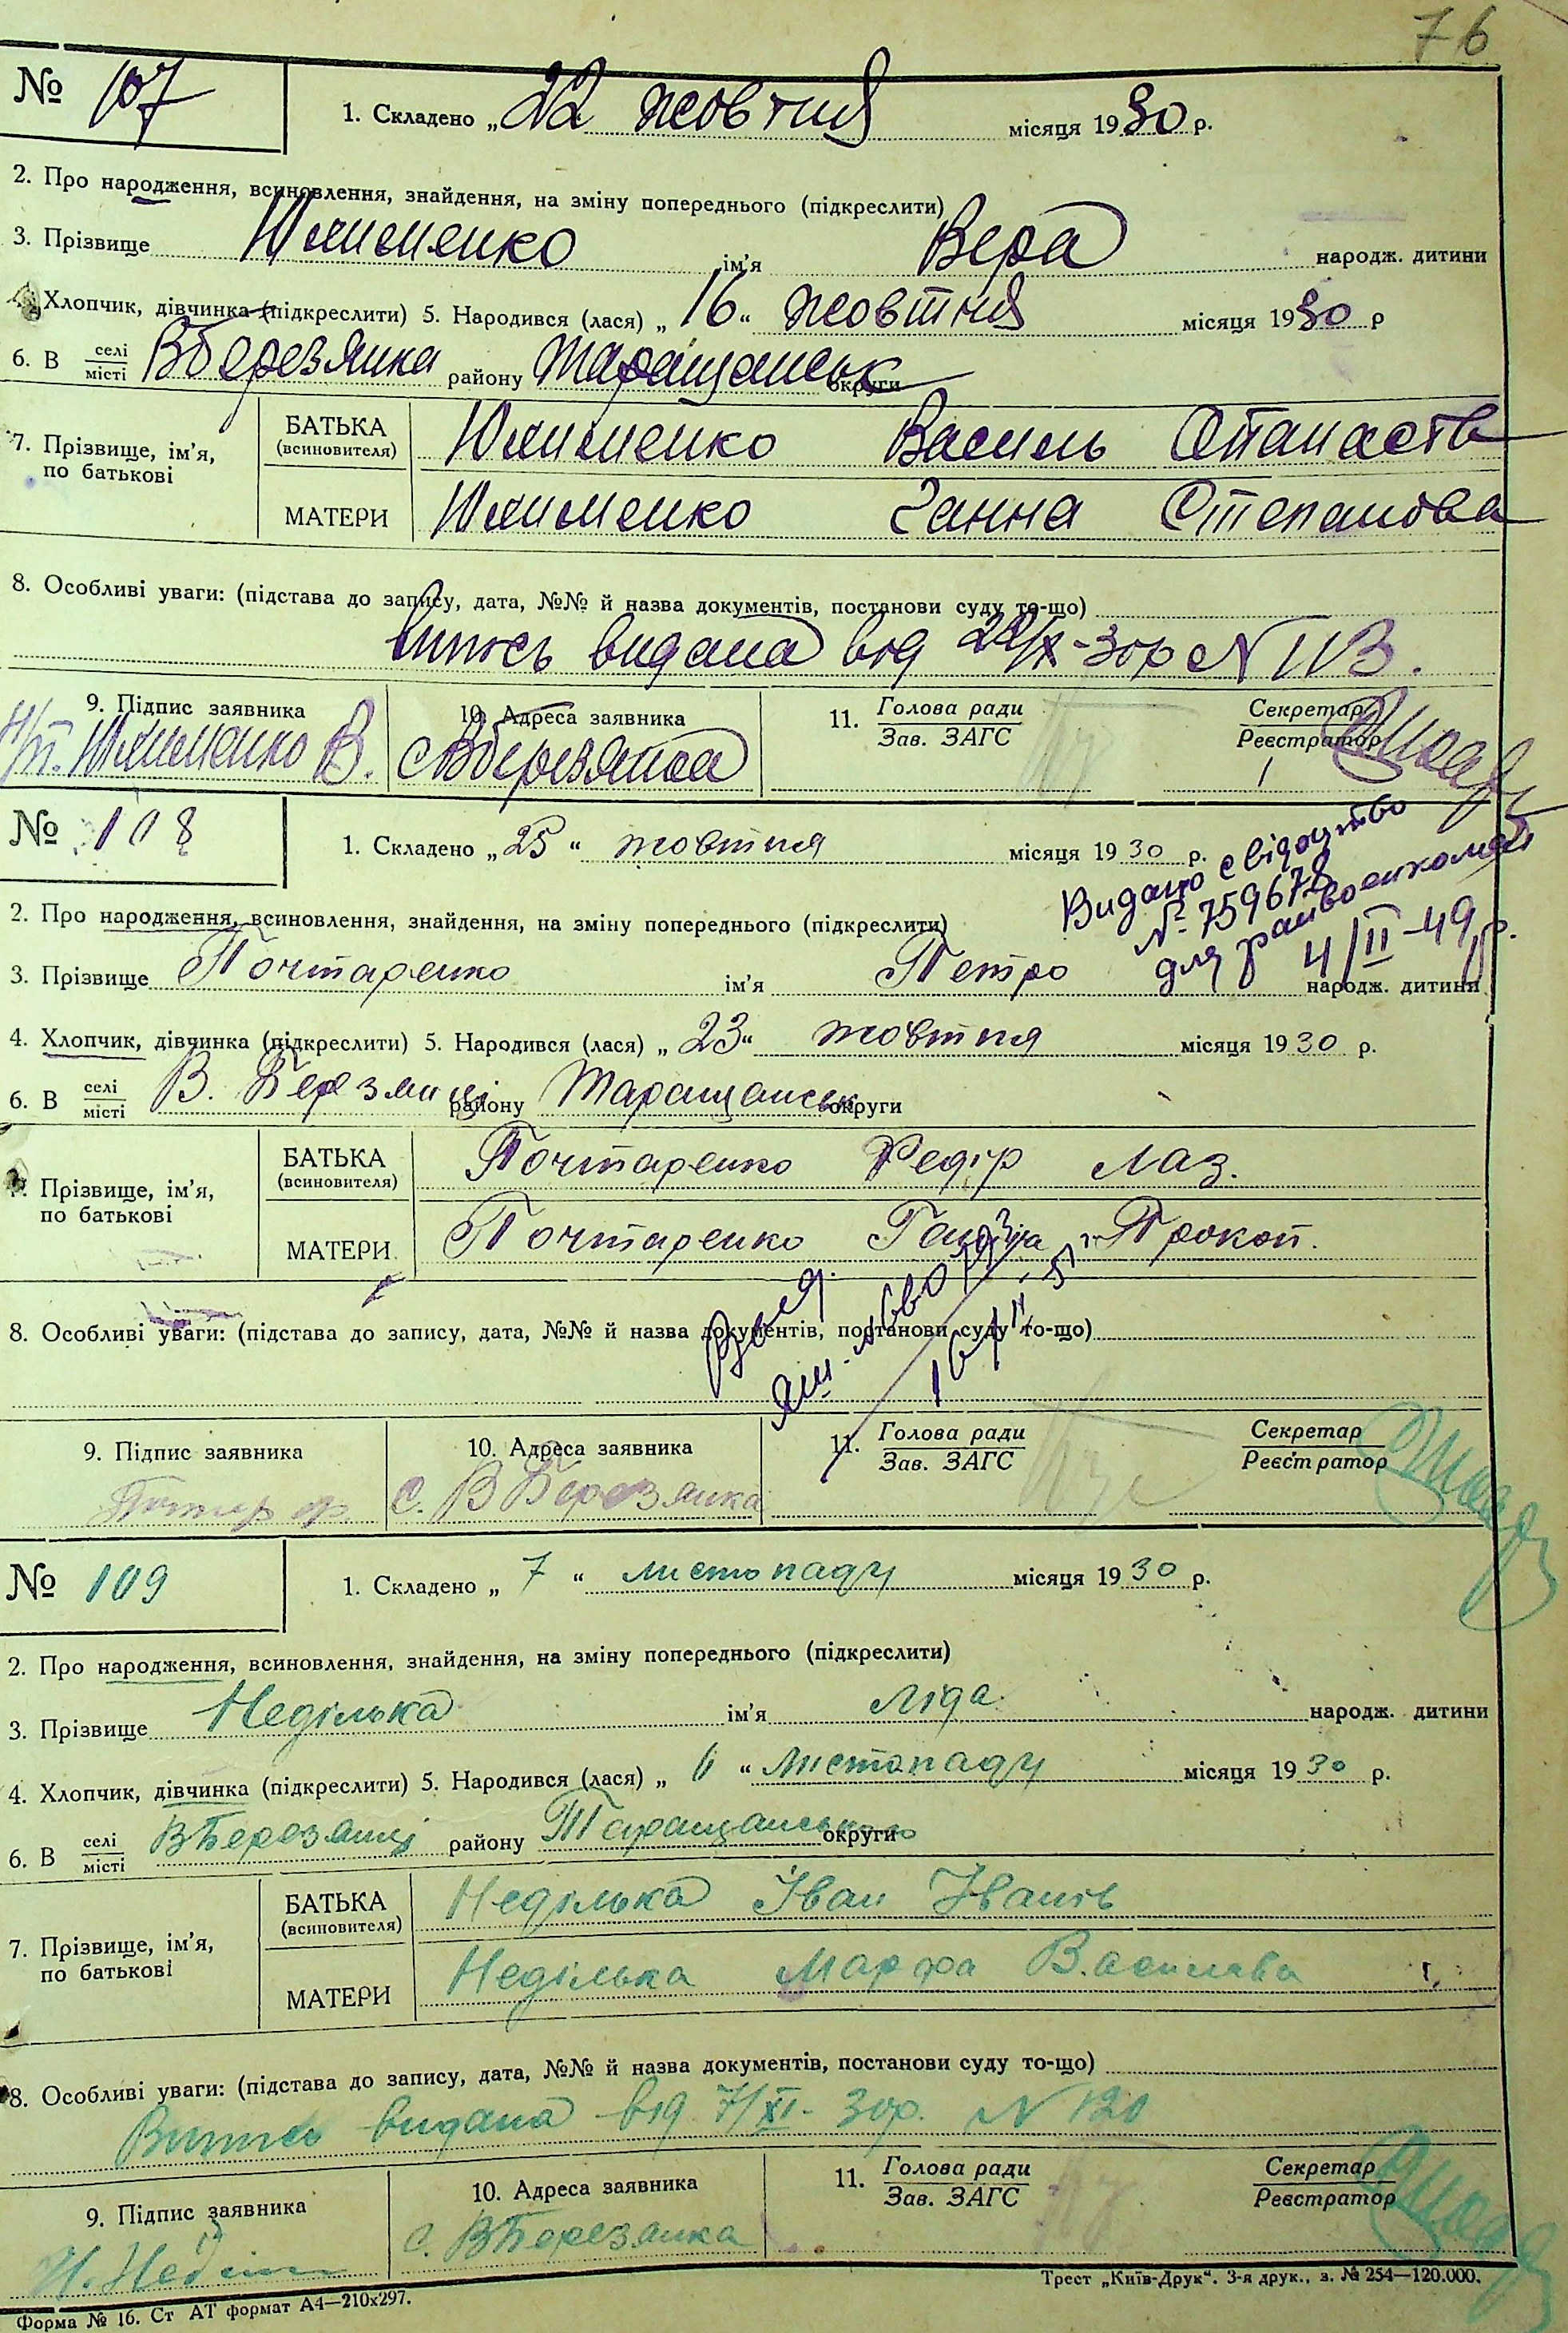 76
№ 107
1. Складено „22 жовтня місяця 1930 р.
2. Про народження, всиновлення, знайдення, на зміну попереднього (підкреслити)
3. Прізвище Юхименко ім'я Вера народж. дитини
Хлопчик, дівчинка (підкреслити) 5. Народився (лася) „16“ жовтня місяця 1930 р
6. В селі/місті ВБерезянка району Таращанськ округи
7. Прізвище, ім'я, по батькові
БАТЬКА (всиновителя) Юхименко Василь Опанасов
МАТЕРИ Юхименко Ганна Степанова
8. Особливі уваги: (підстава до запису, дата, №№ й назва документів, постанови суду то-що)
Випись видана від 22/X-30р N 113.
9. Підпис заявника 10. Адреса заявника 11. Голова ради/Зав. ЗАГС Секретар/Реєстратор
н/п. Юхименко В. с ВБерезянка
№ 108
1. Складено „25“ жовтня місяця 1930 р.
Видано свідоцтво
№ 759678
для райвоенкомата
4/II-49 р.
2. Про народження, всиновлення, знайдення, на зміну попереднього (підкреслити)
3. Прізвище Почтаренко ім'я Петро народж. дитини
4. Хлопчик, дівчинка (підкреслити) 5. Народився (лася) „23“ жовтня місяця 1930 р.
6. В селі/місті В. Березянці району Таращанськ округи
Прізвище, ім'я, по батькові
БАТЬКА (всиновителя) Почтаренко Федір Лаз.
МАТЕРИ Почтаренко Прокоп.
8. Особливі уваги: (підстава до запису, дата, №№ й назва документів, постанови суду то-що)
9. Підпис заявника 10. Адреса заявника 11. Голова ради/Зав. ЗАГС Секретар/Реєстратор
с. ВБерезянка
№ 109
1. Складено „7“ листопаду місяця 1930 р.
2. Про народження, всиновлення, знайдення, на зміну попереднього (підкреслити)
3. Прізвище Неділька ім'я Ліда народж. дитини
4. Хлопчик, дівчинка (підкреслити) 5. Народився (лася) „ “ листопаду місяця 1930 р.
6. В селі/місті ВБерезянці району Таращанського округи
7. Прізвище, ім'я, по батькові
БАТЬКА (всиновителя) Неділька Іван Іванів
МАТЕРИ Неділька Марфа Василева
8. Особливі уваги: (підстава до запису, дата, №№ й назва документів, постанови суду то-що)
Випись видана від 7/XI-30р. N 120
9. Підпис заявника 10. Адреса заявника 11. Голова ради/Зав. ЗАГС Секретар/Реєстратор
с. ВБерезянка
Форма № 16. Ст АТ формат А4—210х297.
Трест „Київ-Друк“. 3-я друк., з. № 254—120.000.